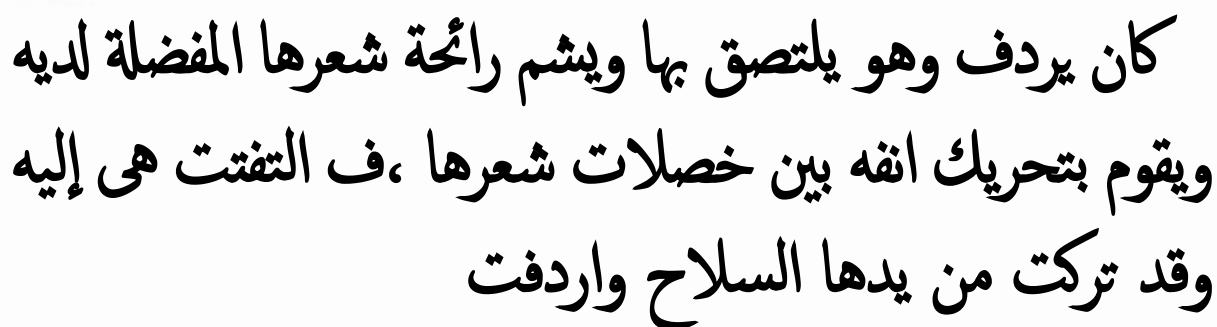 كان يردف وهو يلتصق بها ويشم رائحة شعرها المفضلة لديه
ويقوم بتحريك انفه بين خصلات شعرها ،ف التفتت هى إليه
وقد تركت من يدها السلاح واردفت